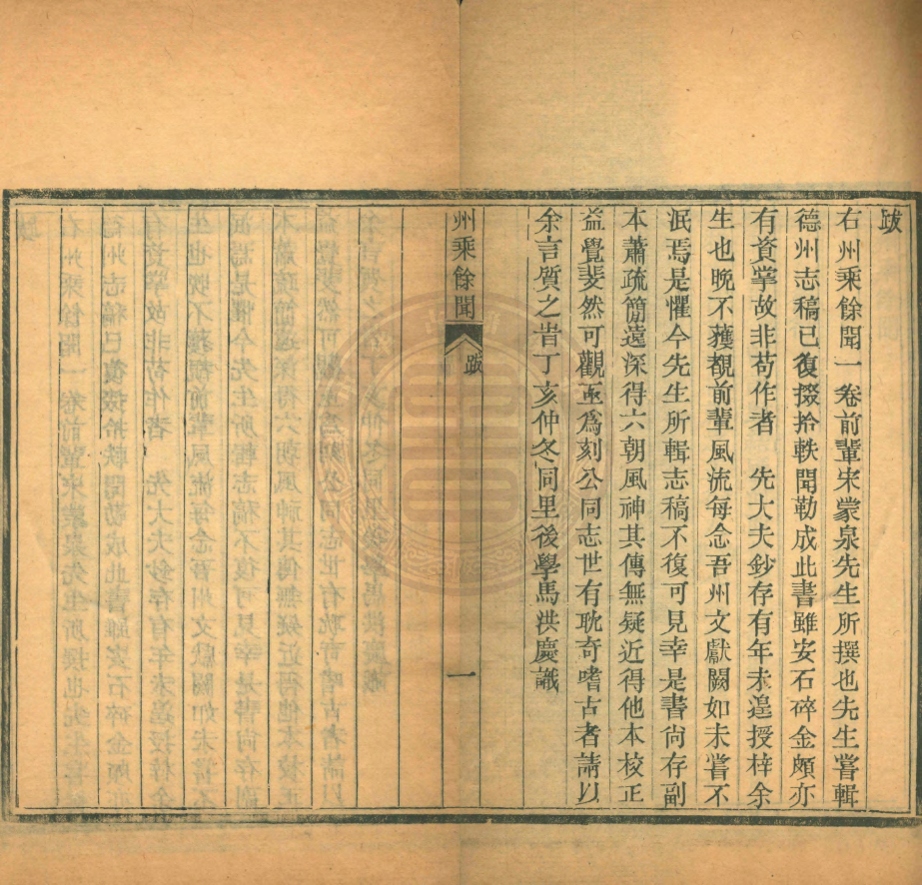 跋
右州乘餘聞一卷前輩宋蒙泉先生所撰也先生嘗輯
德州志稿已復掇拾軼聞勒成此書雖安石碎金頗亦
有資掌故非苟作者　先大夫鈔存有年未遑授梓余
生也晚不獲覩前輩風流每念吾州文獻闕如未嘗不
泯焉是懼今先生所輯志稿不復可見幸是書尙存副
本蕭疏簡遠深得六朝風神其傳無疑近得他本校正
益覺斐然可觀亟爲刻公同志世有耽奇嗜古者請以
余言質之旹丁亥仲冬同里後學馬洪慶識
州乘餘聞
跋
一